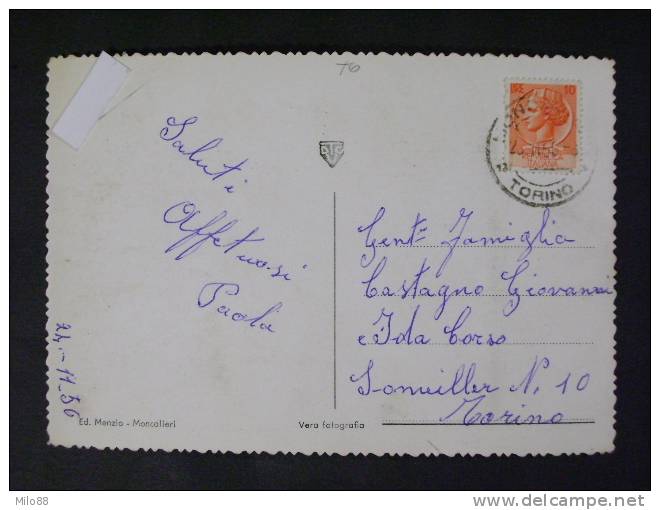 T6
LIRE 10
ITALIANA
TORINO
Saluti
Affetuosi
Paola
24-11-56
Gent= Famiglia
Castagno Giovanni
e Ida Corso
Someiller N. 10
Torino
Ed. Menzio - Moncalieri
Vera fotografia
Milo88
www.delcampe.net